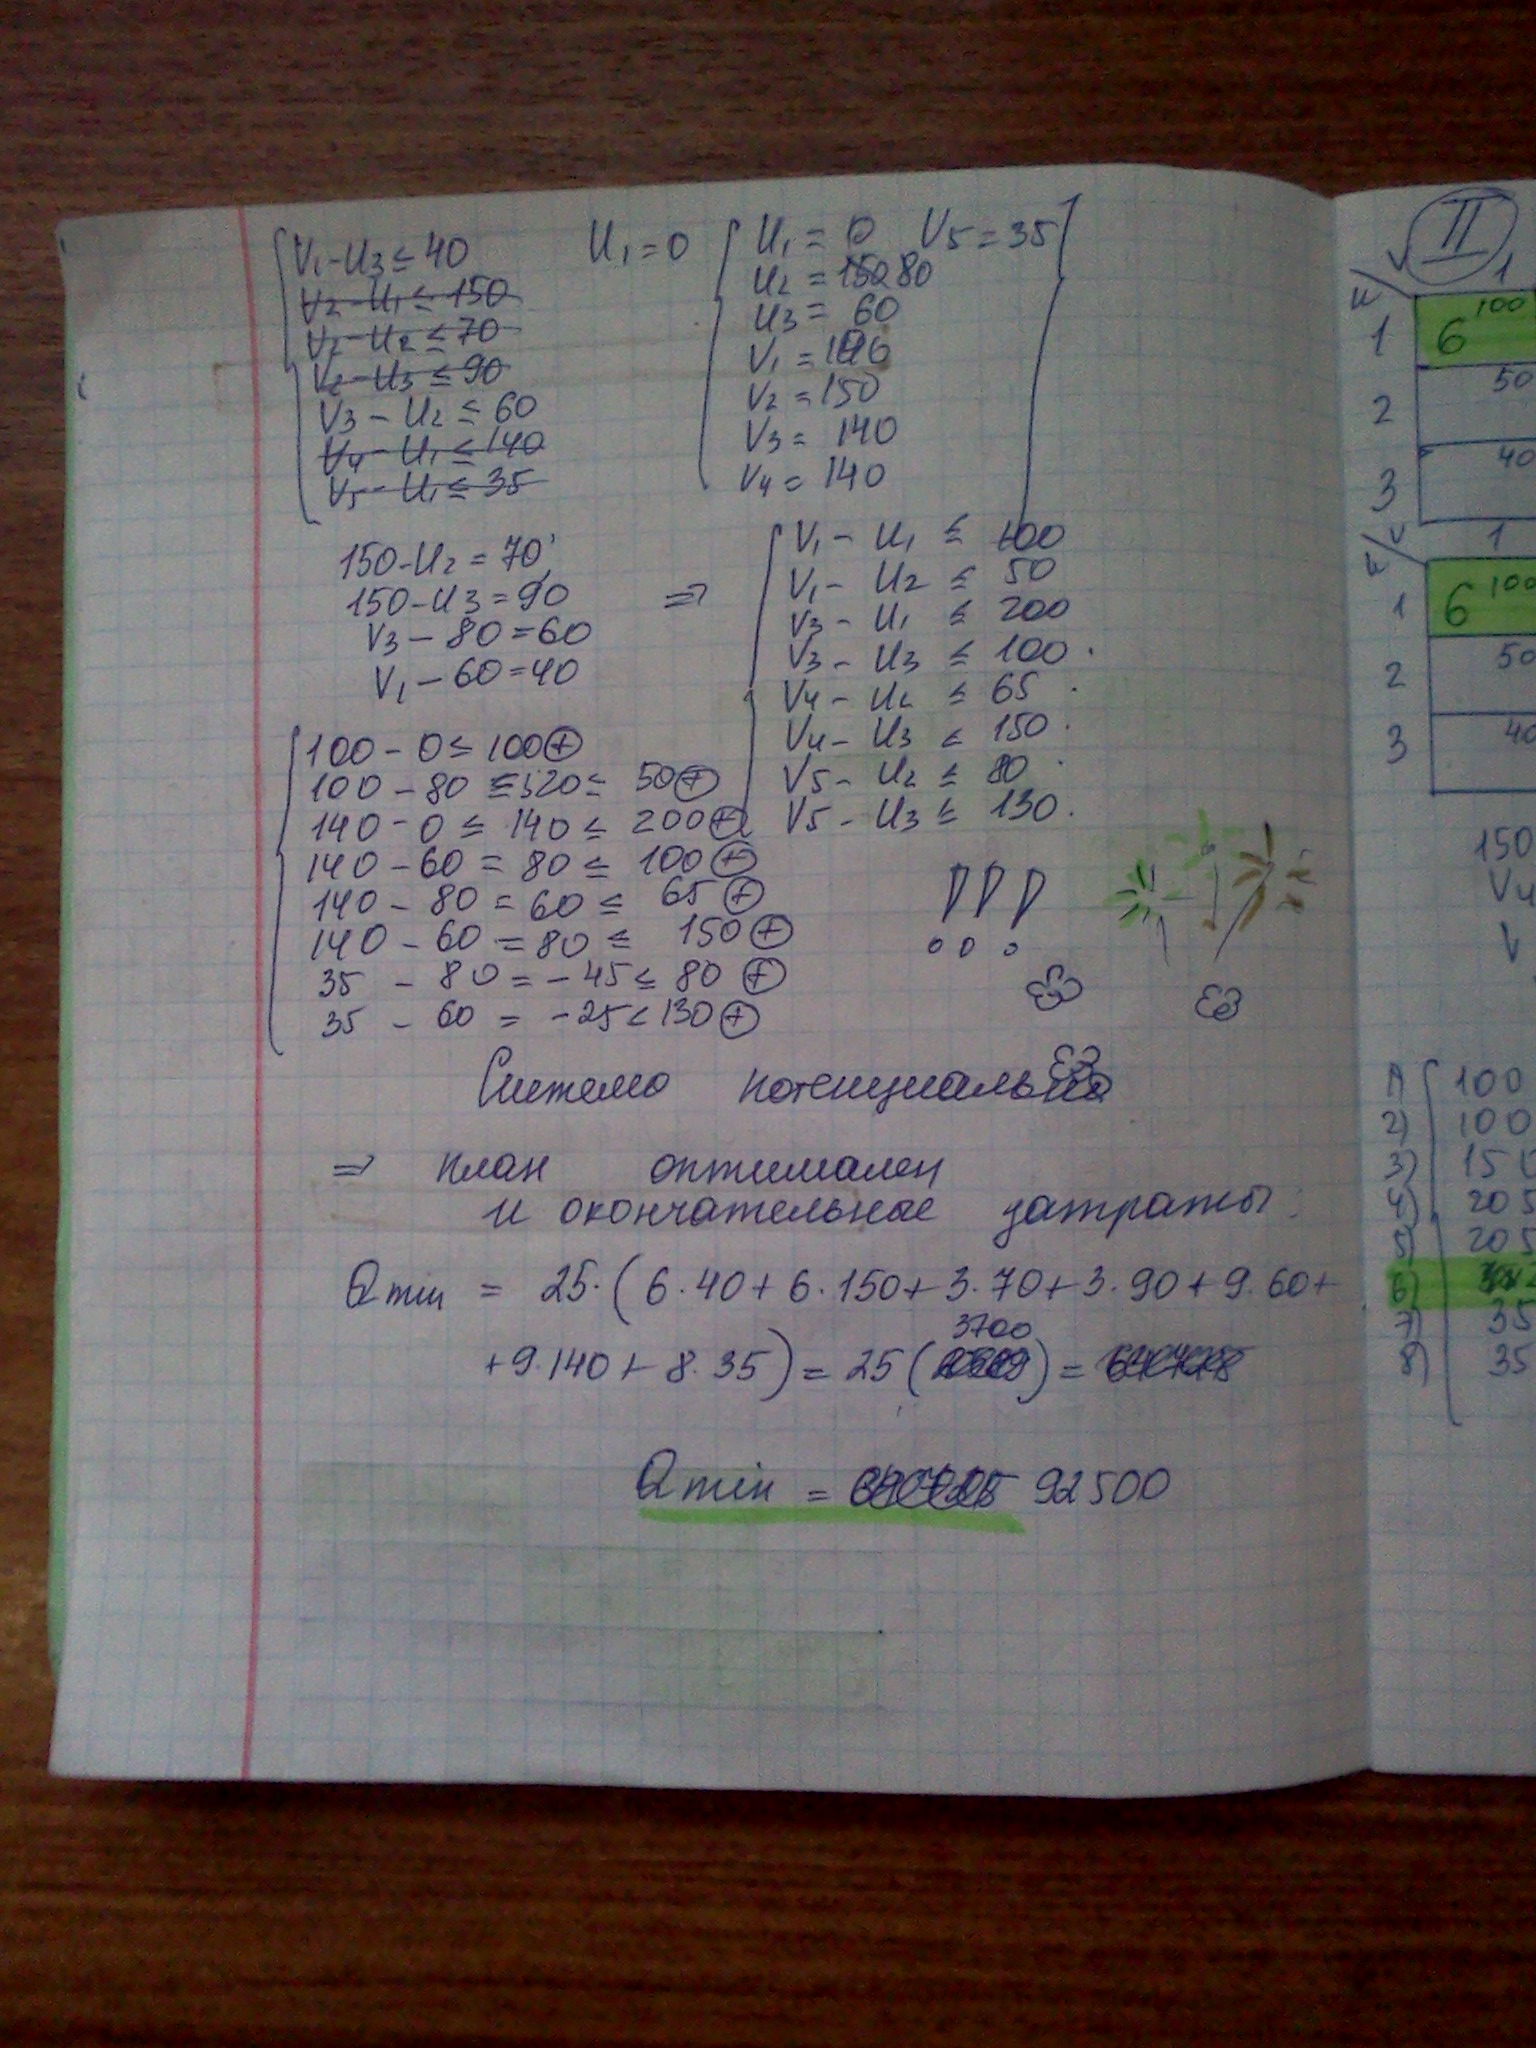 V₁ - U₃ ≤ 40
V₂ - U₁ ≤ 150
V₂ - U₂ ≤ 70
V₂ - U₃ ≤ 90
V₃ - U₂ ≤ 60
V₄ - U₁ ≤ 140
V₅ - U₁ ≤ 35
U₁ = 0
U₁ = 0 V₅ = 35
U₂ = 80
U₃ = 60
V₁ = 100
V₂ = 150
V₃ = 140
V₄ = 140
150 - U₂ = 70
150 - U₃ = 90
V₃ - 80 = 60
V₁ - 60 = 40
⇒
V₁ - U₁ ≤ 100
V₁ - U₂ ≤ 50
V₃ - U₁ ≤ 200
V₃ - U₃ ≤ 100
V₄ - U₂ ≤ 65
V₄ - U₃ ≤ 150
V₅ - U₂ ≤ 80
V₅ - U₃ ≤ 130
100 - 0 ≤ 100 ⊕
100 - 80 ≤ 20 ≤ 50 ⊕
140 - 0 ≤ 140 ≤ 200 ⊕
140 - 60 = 80 ≤ 100 ⊕
140 - 80 = 60 ≤ 65 ⊕
140 - 60 = 80 ≤ 150 ⊕
35 - 80 = -45 ≤ 80 ⊕
35 - 60 = -25 < 130 ⊕
!!!
Система потенциальна
⇒ план оптимален
и окончательные затраты:
Qmin = 25·(6·40 + 6·150 + 3·70 + 3·90 + 9·60 +
+ 9·140 + 8·35) = 25 (3700) =
Qmin = 92500
II
1
1 6 100
2 50
3 40
1
1 6 100
2 50
3 40
150
V₄
V
1) 100
2) 100
3) 150
4) 205
5) 205
6)
7) 35
8) 35